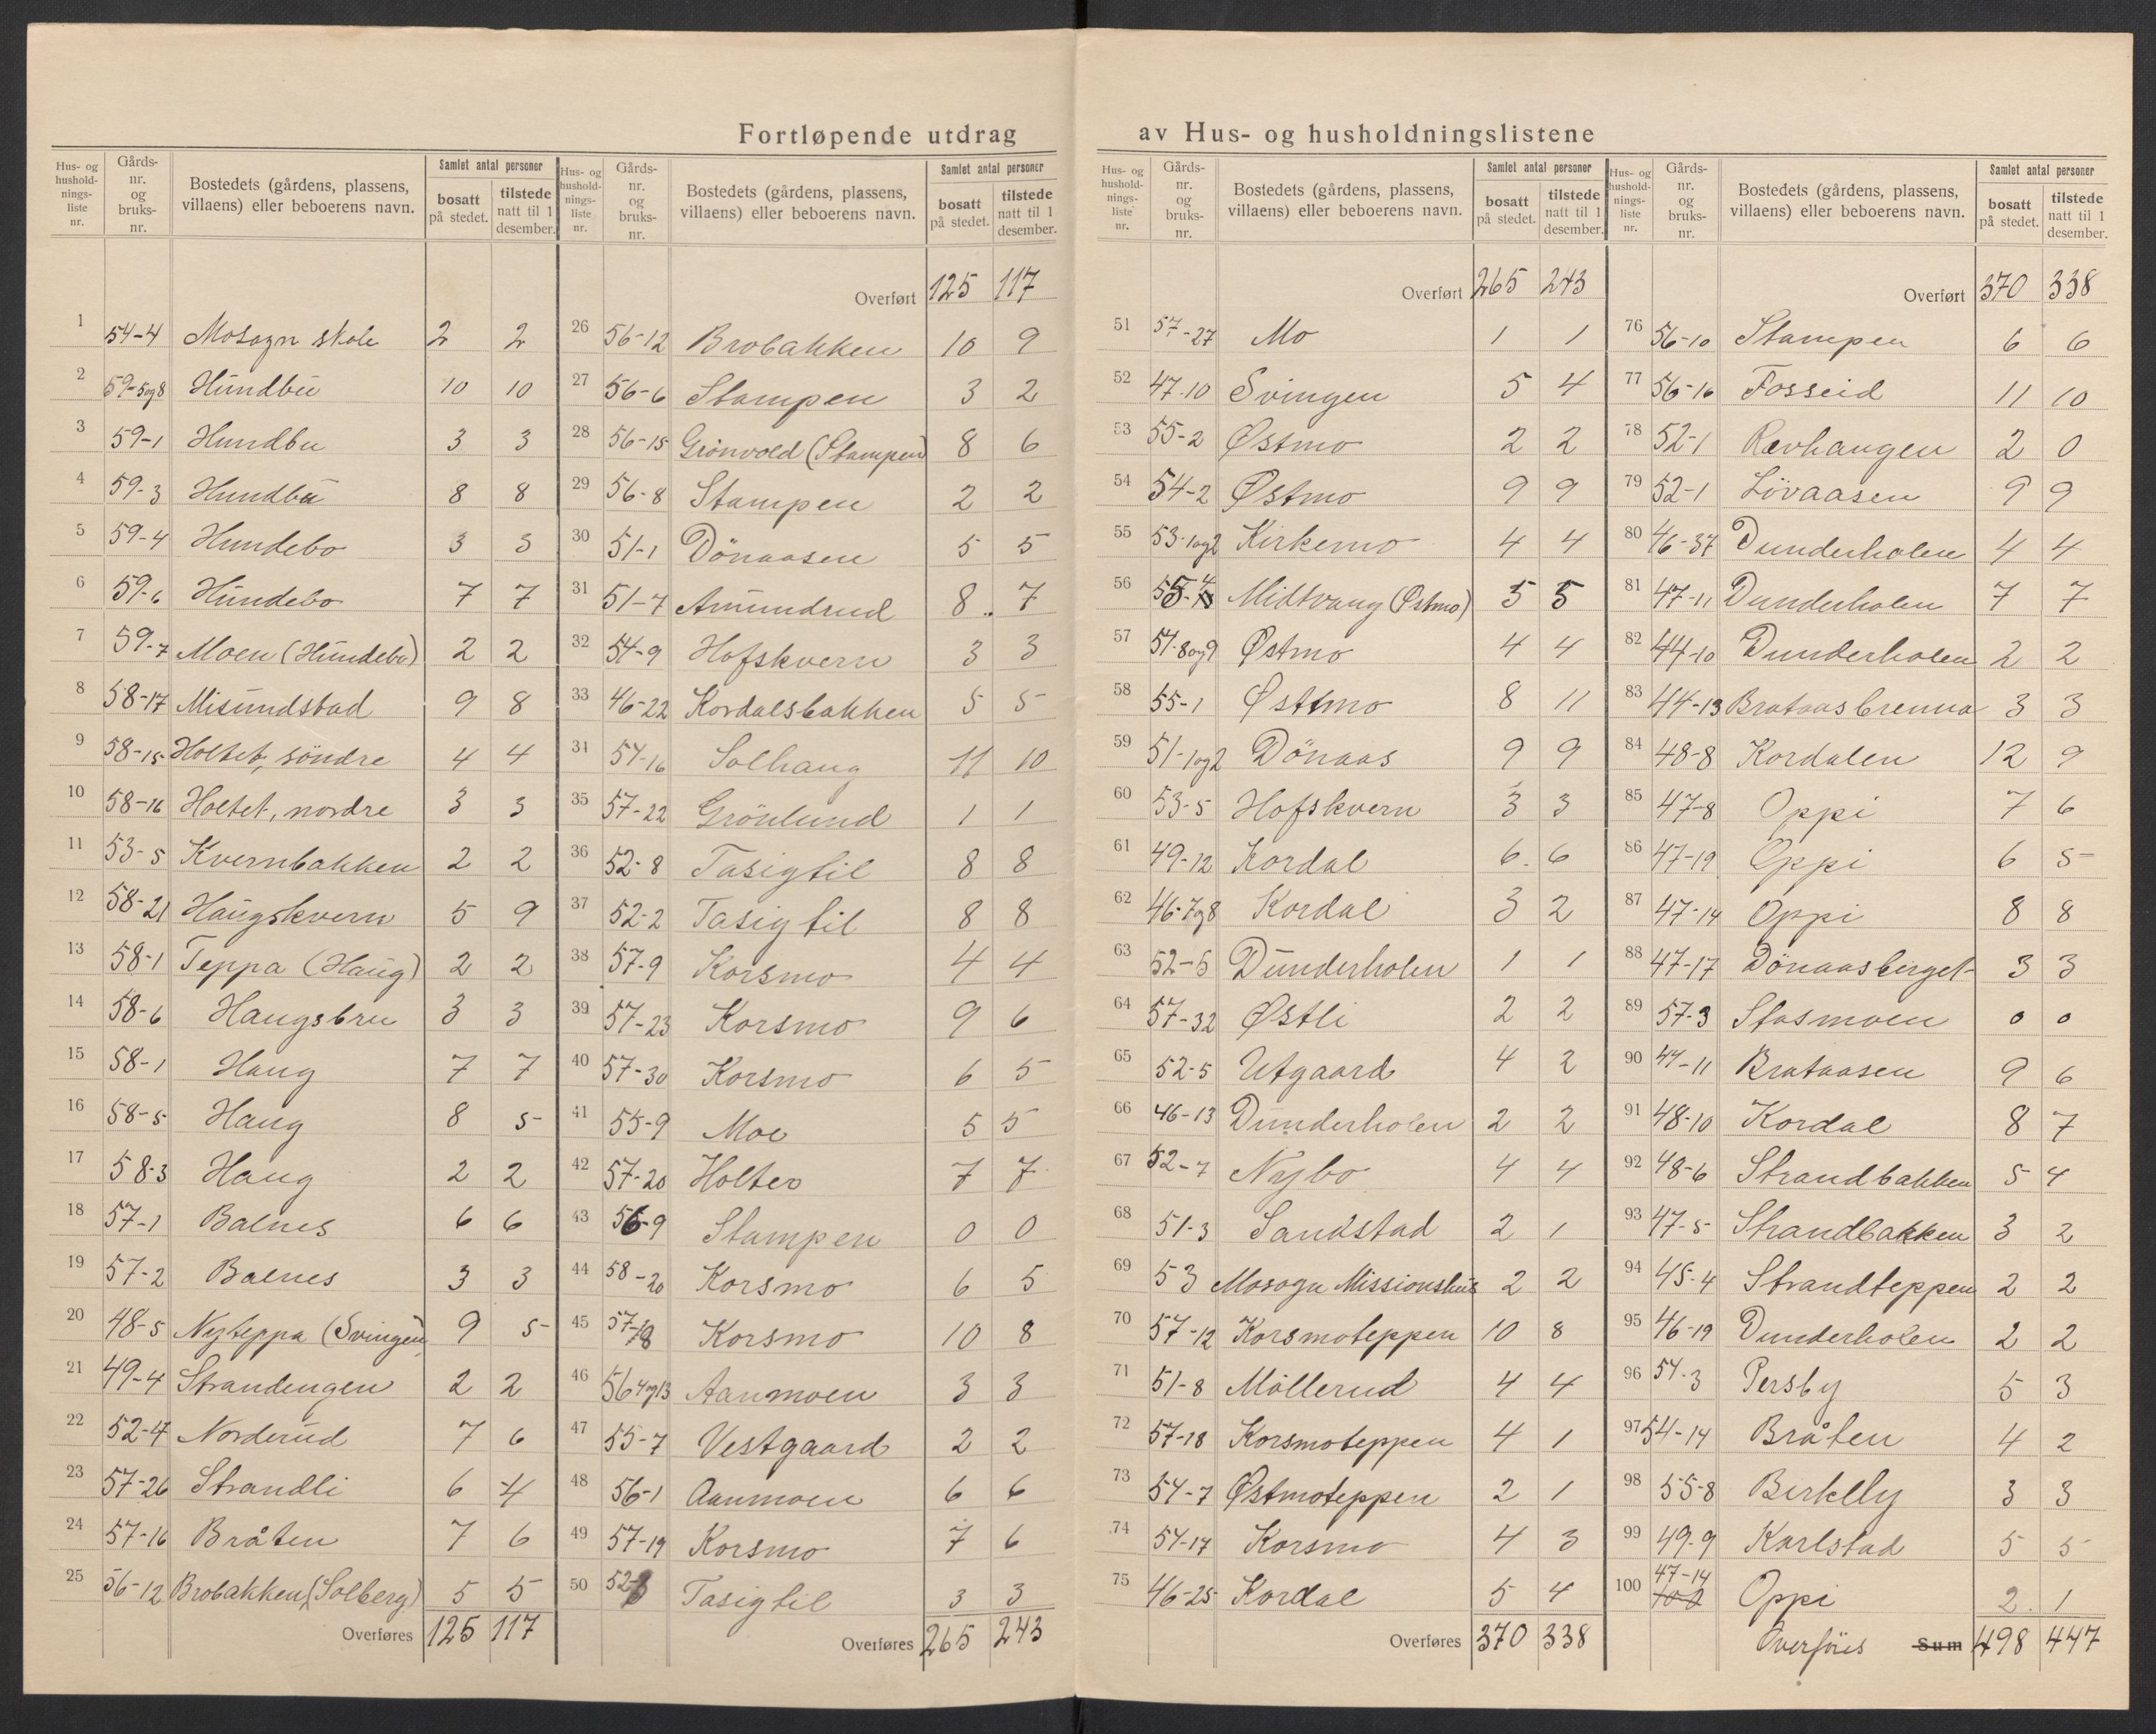 Fortløpende utdrag av Hus- og husholdningslistene
Hus- og hushold- nings- liste nr. | Gårds- nr. og bruks- nr. | Bostedets (gårdens, plassens, villaens) eller beboerens navn. | Samlet antal personer | bosatt på stedet. | tilstede natt til 1 desember.
1 54-4 Mosogn skole 2 2
2 59-5og8 Hundbu 10 10
3 59-1 Hundbu 3 3
4 59-3 Hundbu 8 8
5 59-4 Hundebo 3 3
6 59-6 Hundebo 7 7
7 59-7 Moen (Hundebo) 2 2
8 58-17 Misundstad 9 8
9 58-15 Holtet, söndre 4 4
10 58-16 Holtet, nordre 3 3
11 53-5 Kvernbakken 2 2
12 58-21 Haugskvern 5 9
13 58-1 Teppa (Haug) 2 2
14 58-6 Haugsbru 3 3
15 58-1 Haug 7 7
16 58-5 Haug 8 5
17 58-3 Haug 2 2
18 57-1 Balnes 6 6
19 57-2 Balnes 3 3
20 48-5 Nyteppa (Svingen) 9 5
21 49-4 Strandengen 2 2
22 52-4 Norderud 7 6
23 57-26 Strandli 6 4
24 57-16 Bråten 7 6
25 56-12 Brobakken, (Solberg) 5 5
Overføres 125 117
Hus- og hushold- nings- liste nr. | Gårds- nr. og bruks- nr. | Bostedets (gårdens, plassens, villaens) eller beboerens navn. | Samlet antal personer | bosatt på stedet. | tilstede natt til 1 desember.
Overført 125 117
26 56-12 Brobakken 10 9
27 56-6 Stampen 3 2
28 56-15 Grönvold (Stampen) 8 6
29 56-8 Stampen 2 2
30 51-1 Dönaasen 5 5
31 51-7 Amundrud 8 7
32 54-9 Hofskvern 3 3
33 46-22 Kordalsbakken 5 5
34 57-16 Solhaug 11 10
35 57-22 Grönlund 1 1
36 52-8 Tasigtil 8 8
37 52-2 Tasigtil 8 8
38 57-9 Korsmo 4 4
39 57-23 Korsmo 9 6
40 57-30 Korsmo 6 5
41 55-9 Moe 5 5
42 57-20 Holter 7 7
43 56-9 Stampen 0 0
44 58-20 Korsmo 6 5
45 57-18 Korsmo 10 8
46 56 4og13 Aanmoen 3 3
47 55-7 Vestgaard 2 2
48 56-1 Aanmoen 6 6
49 57-19 Korsmo 7 6
50 52- Tasigtil 3 3
Overføres 265 243
Hus- og hushold- nings- liste nr. | Gårds- nr. og bruks- nr. | Bostedets (gårdens, plassens, villaens) eller beboerens navn. | Samlet antal personer | bosatt på stedet. | tilstede natt til 1 desember.
Overført 265 243
51 57-27 Mo 1 1
52 47-10 Svingen 5 4
53 55-2 Østmo 2 2
54 54-2 Østmo 9 9
55 53-1og2 Kirkemo 4 4
56 55-4 Midtvang (Østmo) 5 5
57 54-8og9 Østmo 4 4
58 55-1 Østtmo 8 11
59 51-1og2 Dönaas 9 9
60 53-5 Hofskvern 3 3
61 49-12 Kordal 6 6
62 46-7og8 Kordal 3 2
63 52-5 Dunderholen 1 1
64 57-32 Østli 2 2
65 52-5 Utgaard 4 2
66 46-13 Dunderholen 2 2
67 52-7 Nybo 4 4
68 51-3 Sandstad 2 1
69 53 Mosogn Missionshus 2 2
70 57-12 Korsmoteppen 10 8
71 51-8 Möllerud 4 4
72 57-18 Korsmoteppen 4 1
73 54-7 Østmoteppen 2 1
74 54-17 Korsmo 4 3
75 46-25 Kordal 5 4
Overføres 370 338
Hus- og hushold- nings- liste nr. | Gårds- nr. og bruks- nr. | Bostedets (gårdens, plassens, villaens) eller beboerens navn. | Samlet antal personer | bosatt på stedet. | tilstede natt til 1 desember.
Overført 370 338
76 56-10 Stampen 6 6
77 56-16 Fosseid 11 10
78 52-1 Revhaugen 2 0
79 52-1 Lövaasen 9 9
80 46-37 Dunderholen 4 4
81 47-11 Dunderholen 7 7
82 44-10 Dunderholen 2 2
83 44-13 Brataasbrenna 3 3
84 48-8 Kordalen 12 9
85 47-8 Oppi 7 6
86 47-19 Oppi 6 5
87 47-14 Oppi 8 8
88 47-17 Dönaasberget 3 3
89 57-3 Stasmoen 0 0
90 44-11 Brataasen 9 6
91 48-10 Kordal 8 7
92 48-6 Strandbakken 5 4
93 47-5 Strandbakken 3 2
94 45-4 Strandteppen 2 2
95 46-19 Dunderholen 2 2
96 54-3 Persby 5 3
97 54-14 Bråten 4 2
98 55-8 Birkely 3 3
99 49-9 Karlstad 5 5
100 47-14 Oppi 2 1
Overföres Sum 498 447